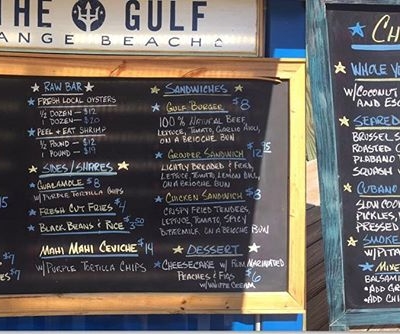 THE GULF
ANGE BEACH
RAW BAR
FRESH LOCAL OYSTERS
1/2 DOZEN - $12
1 DOZEN - $20
PEEL + EAT SHRIMP
1/2 POUND - $12
1 POUND - $19
SIDES/SHARES
GUACAMOLE $8
W/PURPLE TORTILLA CHIPS
FRESH CUT FRIES $4
BLACK BEANS & RICE $3.50
MAHI MAHI CEVICHE $14
W/PURPLE TORTILLA CHIPS
SANDWICHES
GULF BURGER $8
100% NATURAL BEEF,
LETTUCE, TOMATO, GARLIC AIOLI,
ON A BRIOCHE BUN
GROUPER SANDWICH $12.95
LIGHTLY BREADED & FRIED,
LETTUCE, TOMATO, LEMON AIOLI,
ON A BRIOCHE BUN
CHICKEN SANDWICH $8
CRISPY FRIED TENDERS,
LETTUCE, TOMATO, SPICY
BUTTERMILK, ON A BRIOCHE BUN
DESSERT
CHEESECAKE W/ RUM MARINATED
PEACHES & FIGS $6
W/WHIPPED CREAM
9
$7
CH
WHOLE
W/COCONUT
AND
SEARED
BRUSSEL S
ROASTED
SQUASH
CUBANO
SLOW COOK
PICKLES,
PRESSED
SMOKE
W/PITA
MIXE
BALSAMI
+ADD
+ADD